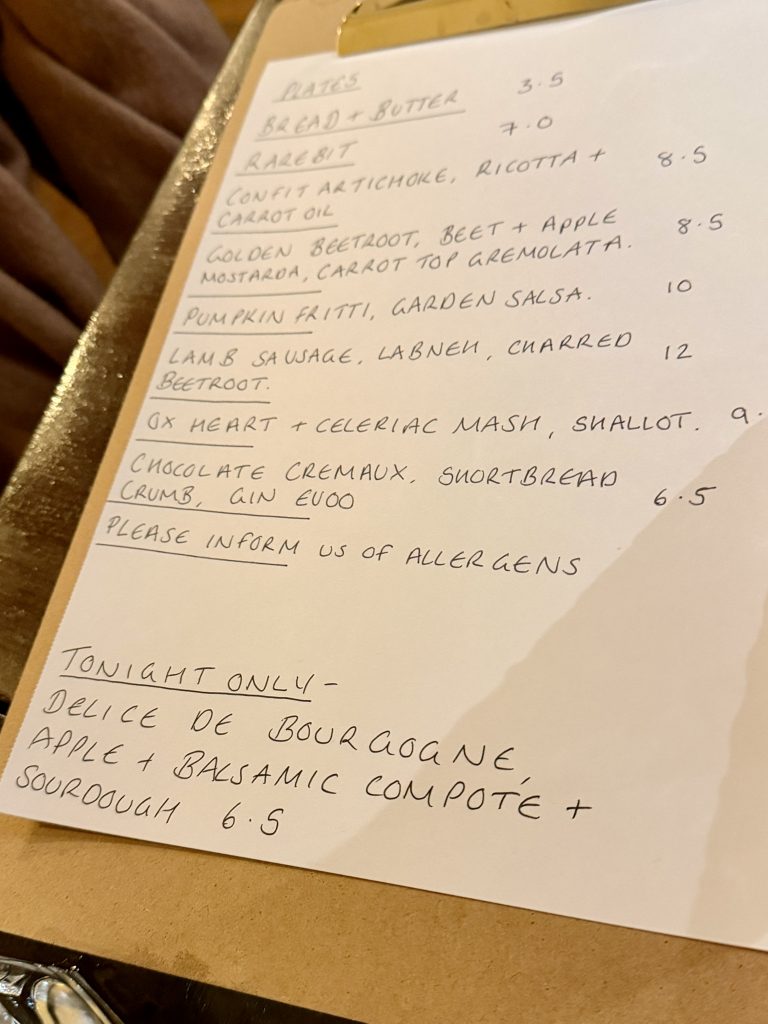 PLATES
BREAD + BUTTER 3.5
RAREBIT 7.0
CONFIT ARTICHOKE, RICOTTA + 8.5
CARROT OIL
GOLDEN BEETROOT, BEET + APPLE 8.5
MOSTARDA, CARROT TOP GREMOLATA.
PUMPKIN FRITTI, GARDEN SALSA. 10
LAMB SAUSAGE, LABNEH, CHARRED 12
BEETROOT.
OX HEART + CELERIAC MASH, SHALLOT. 9.
CHOCOLATE CREMAUX, SHORTBREAD
CRUMB, GIN EVOO 6.5
PLEASE INFORM US OF ALLERGENS
TONIGHT ONLY -
DELICE DE BOURGOGNE,
APPLE + BALSAMIC COMPOTE +
SOURDOUGH 6.5